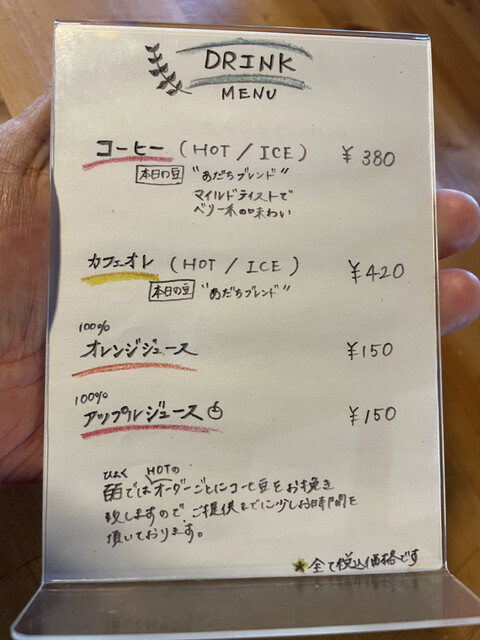 DRINK
MENU
コーヒー (HOT / ICE) ¥380
本日の豆 "あだちブレンド"
マイルドテイストで
ベリー系の味わい
カフェオレ (HOT / ICE) ¥420
本日の豆 "あだちブレンド"
100%
オレンジジュース ¥150
100%
アップルジュース ¥150
ひゃく HOTの
百ではオーダーごとにコーヒー豆をお挽き
致しますので、ご提供までに少しお時間を
頂いております。
★全て税込価格です